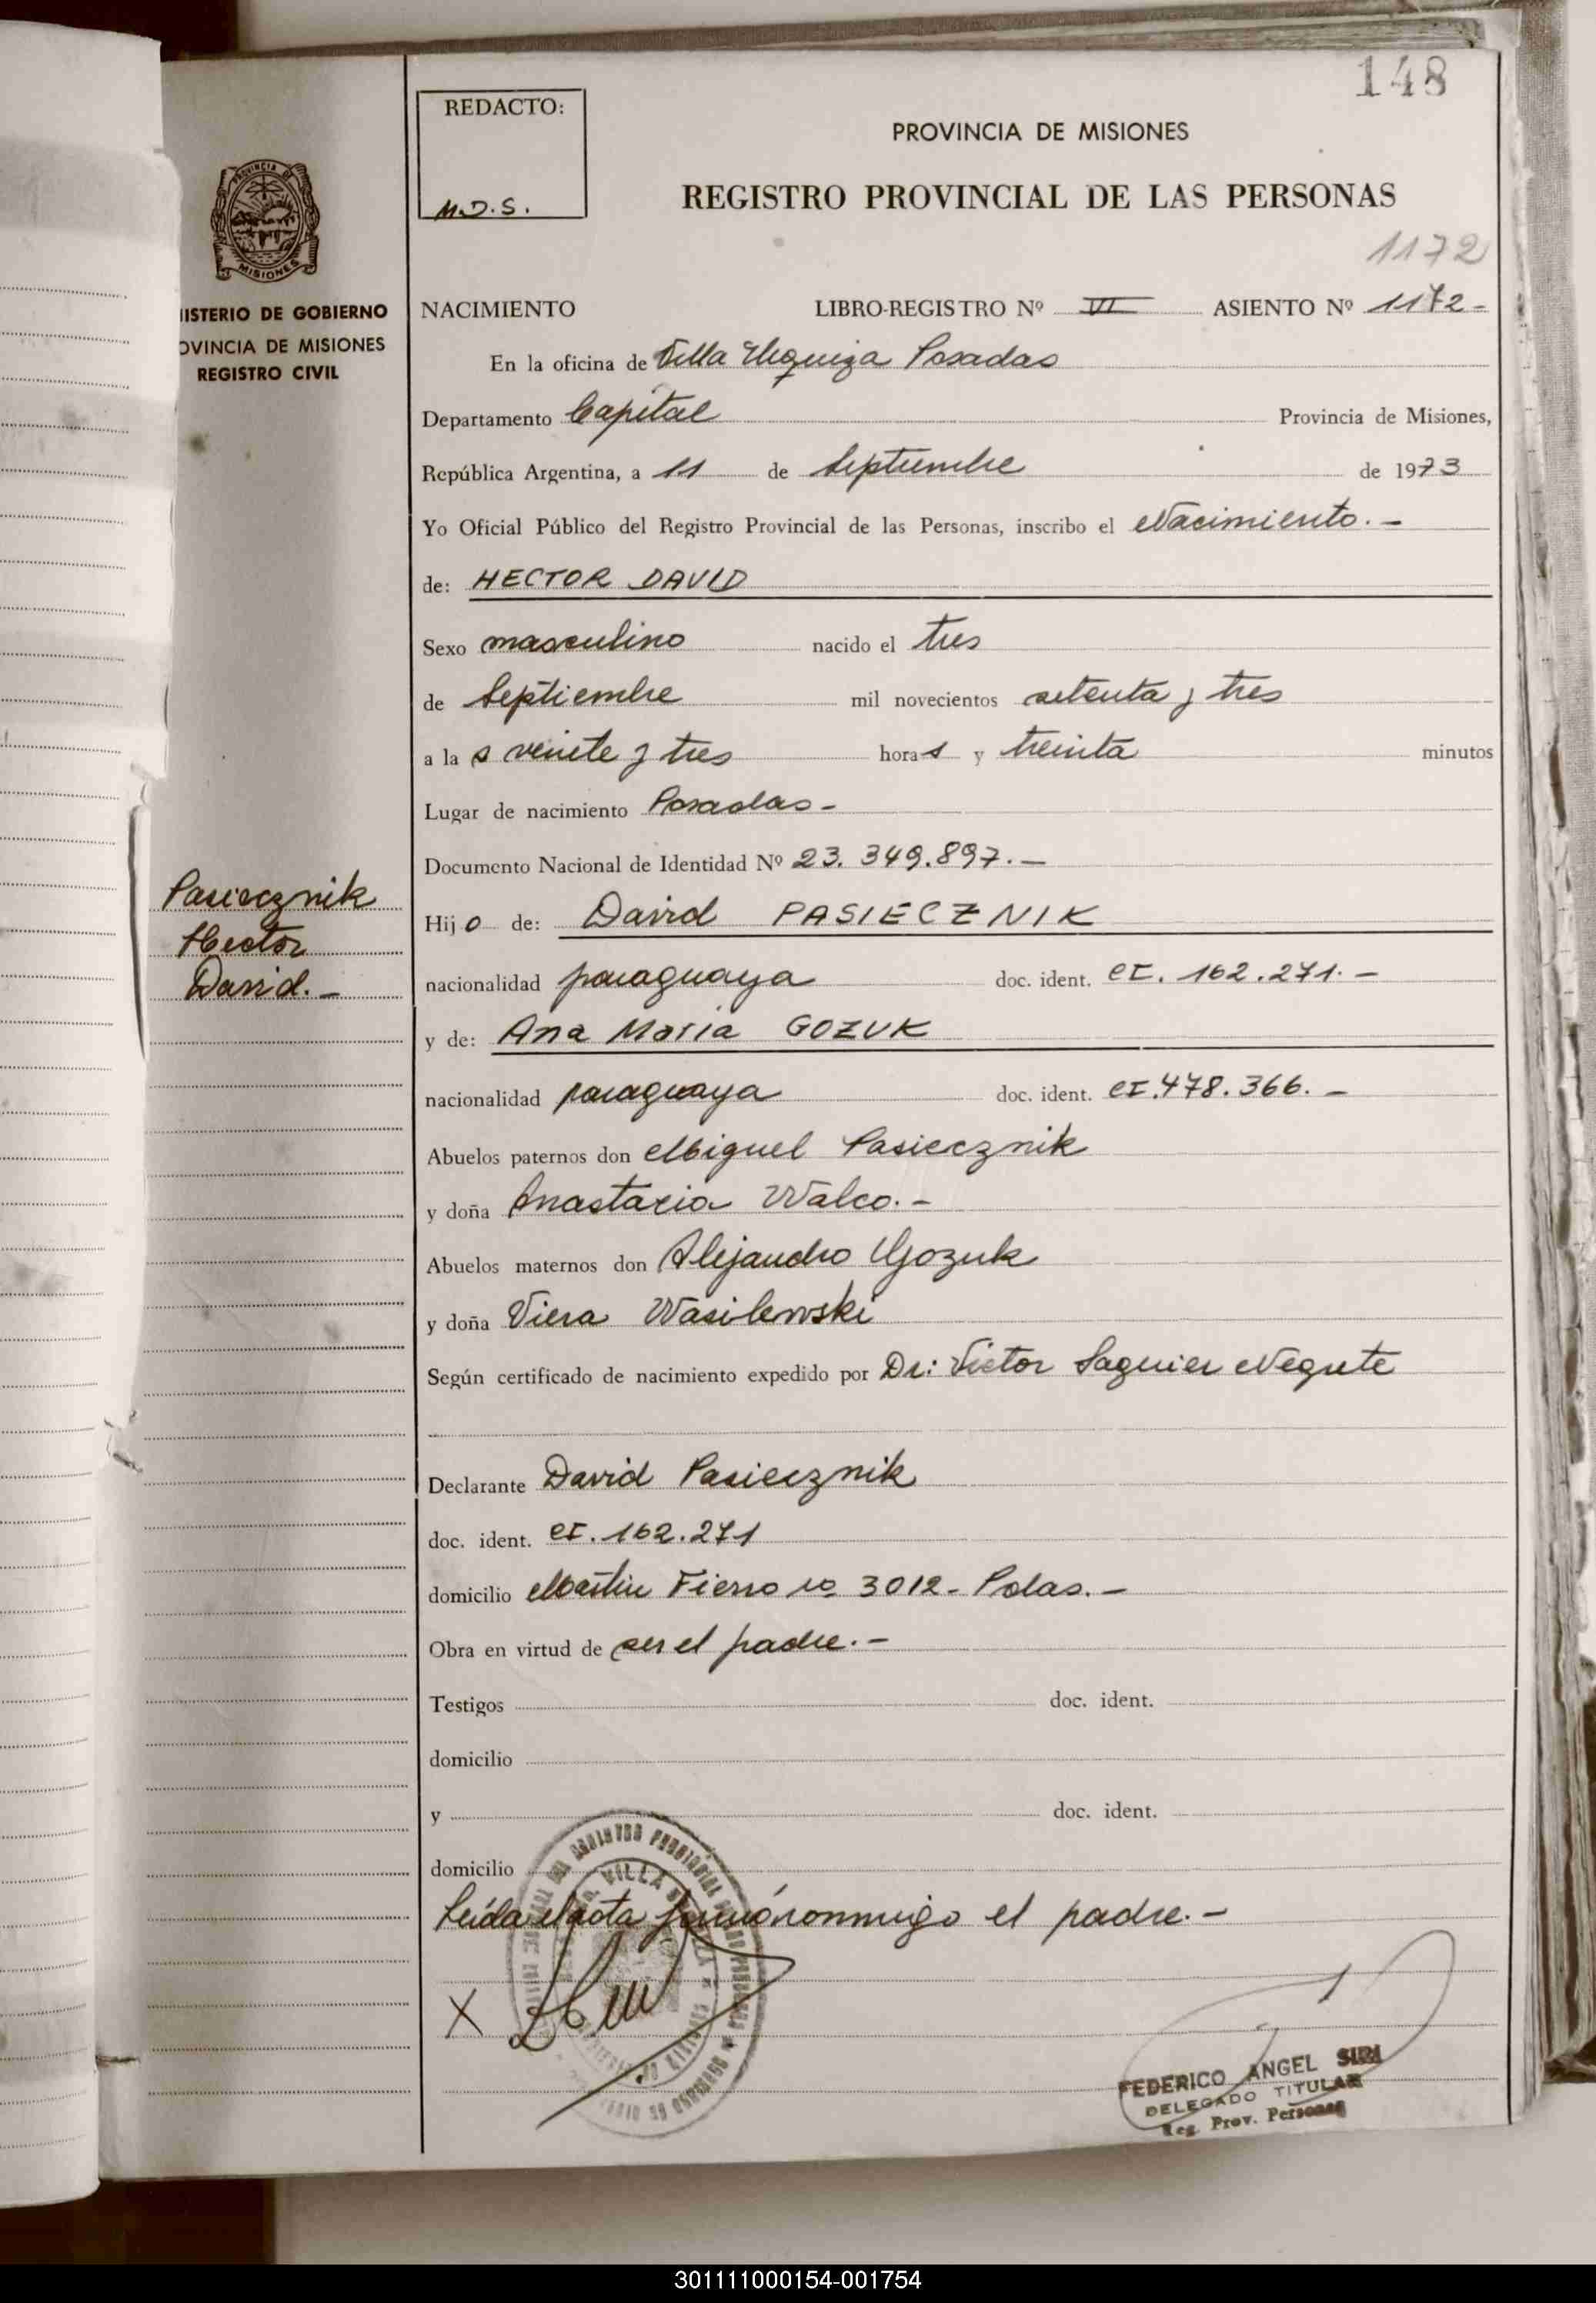 148
REDACTO:
M.D.S.
PROVINCIA DE MISIONES
REGISTRO PROVINCIAL DE LAS PERSONAS
1172
PROVINCIA DE
MISIONES
ISTERIO DE GOBIERNO
OVINCIA DE MISIONES
REGISTRO CIVIL
NACIMIENTO LIBRO-REGISTRO Nº VI ASIENTO Nº 1172-
En la oficina de Villa Urquiza Posadas
Departamento Capital Provincia de Misiones,
República Argentina, a 11 de Septiembre de 1973
Yo Oficial Público del Registro Provincial de las Personas, inscribo el Nacimiento.-
de: HECTOR DAVID
Sexo masculino nacido el tres
de Septiembre mil novecientos setenta y tres
a la s veinte y tres hora s y treinta minutos
Lugar de nacimiento Posadas-
Documento Nacional de Identidad Nº 23.349.897.-
Pasiecznik
Hector
David.-
Hij o de: David PASIECZNIK
nacionalidad paraguaya doc. ident. CI. 162.271.-
y de: Ana Maria GOZUK
nacionalidad paraguaya doc. ident. CI.478.366.-
Abuelos paternos don Miguel Pasiecznik
y doña Anastacia Walco.-
Abuelos maternos don Alejandro Gozuk
y doña Viera Wasilewski
Según certificado de nacimiento expedido por Dr: Victor Saguier Negrete
Declarante David Pasiecznik
doc. ident. CI. 162.271
domicilio Martin Fierro nº 3012- Pdas.-
Obra en virtud de ser el padre.-
Testigos doc. ident.
domicilio
y doc. ident.
domicilio
Leída el acta firmó conmigo el padre.-
X
VILLA
FEDERICO ANGEL SIRI
DELEGADO TITULAR
Reg. Prov. Personas
301111000154-001754